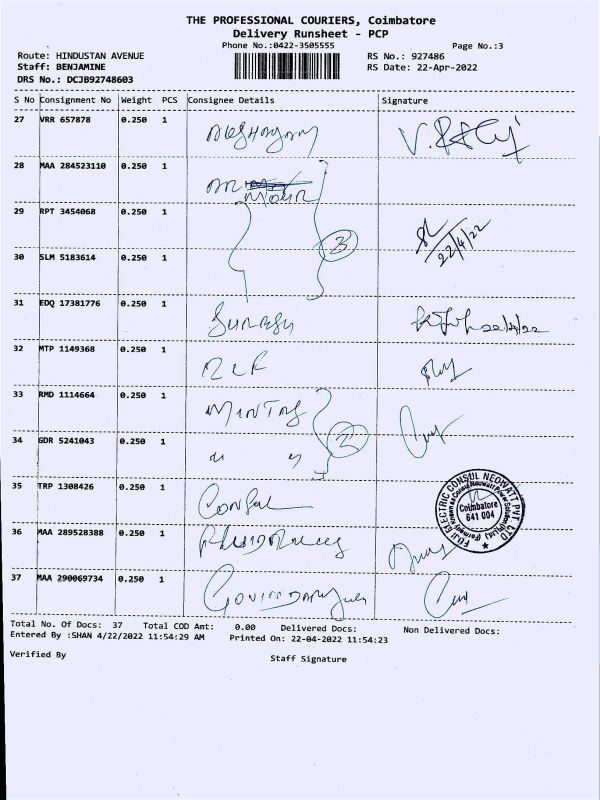 THE PROFESSIONAL COURIERS, Coimbatore
Delivery Runsheet - PCP
Phone No.:0422-3505555
Page No.:3
Route: HINDUSTAN AVENUE
RS No.: 927486
Staff: BENJAMINE
RS Date: 22-Apr-2022
DRS No.: DCJB92748603
S No Consignment No Weight PCS Consignee Details Signature
27 VRR 657878 0.250 1
28 MAA 284523110 0.250 1
29 RPT 3454068 0.250 1
3
22/4/22
30 SLM 5183614 0.250 1
31 EDQ 17381776 0.250 1 Suresh 22/4/22
32 MTP 1149368 0.250 1
33 RMD 1114664 0.250 1
34 GDR 5241043 0.250 1
35 TRP 1308426 0.250 1 Consul
FUJI ELECTRIC CONSUL NEOWATT PVT LTD
Coimbatore
641 004
36 MAA 289528388 0.250 1
37 MAA 290069734 0.250 1
Total No. Of Docs: 37 Total COD Amt: 0.00 Delivered Docs: Non Delivered Docs:
Entered By :SHAN 4/22/2022 11:54:29 AM Printed On: 22-04-2022 11:54:23
Verified By Staff Signature